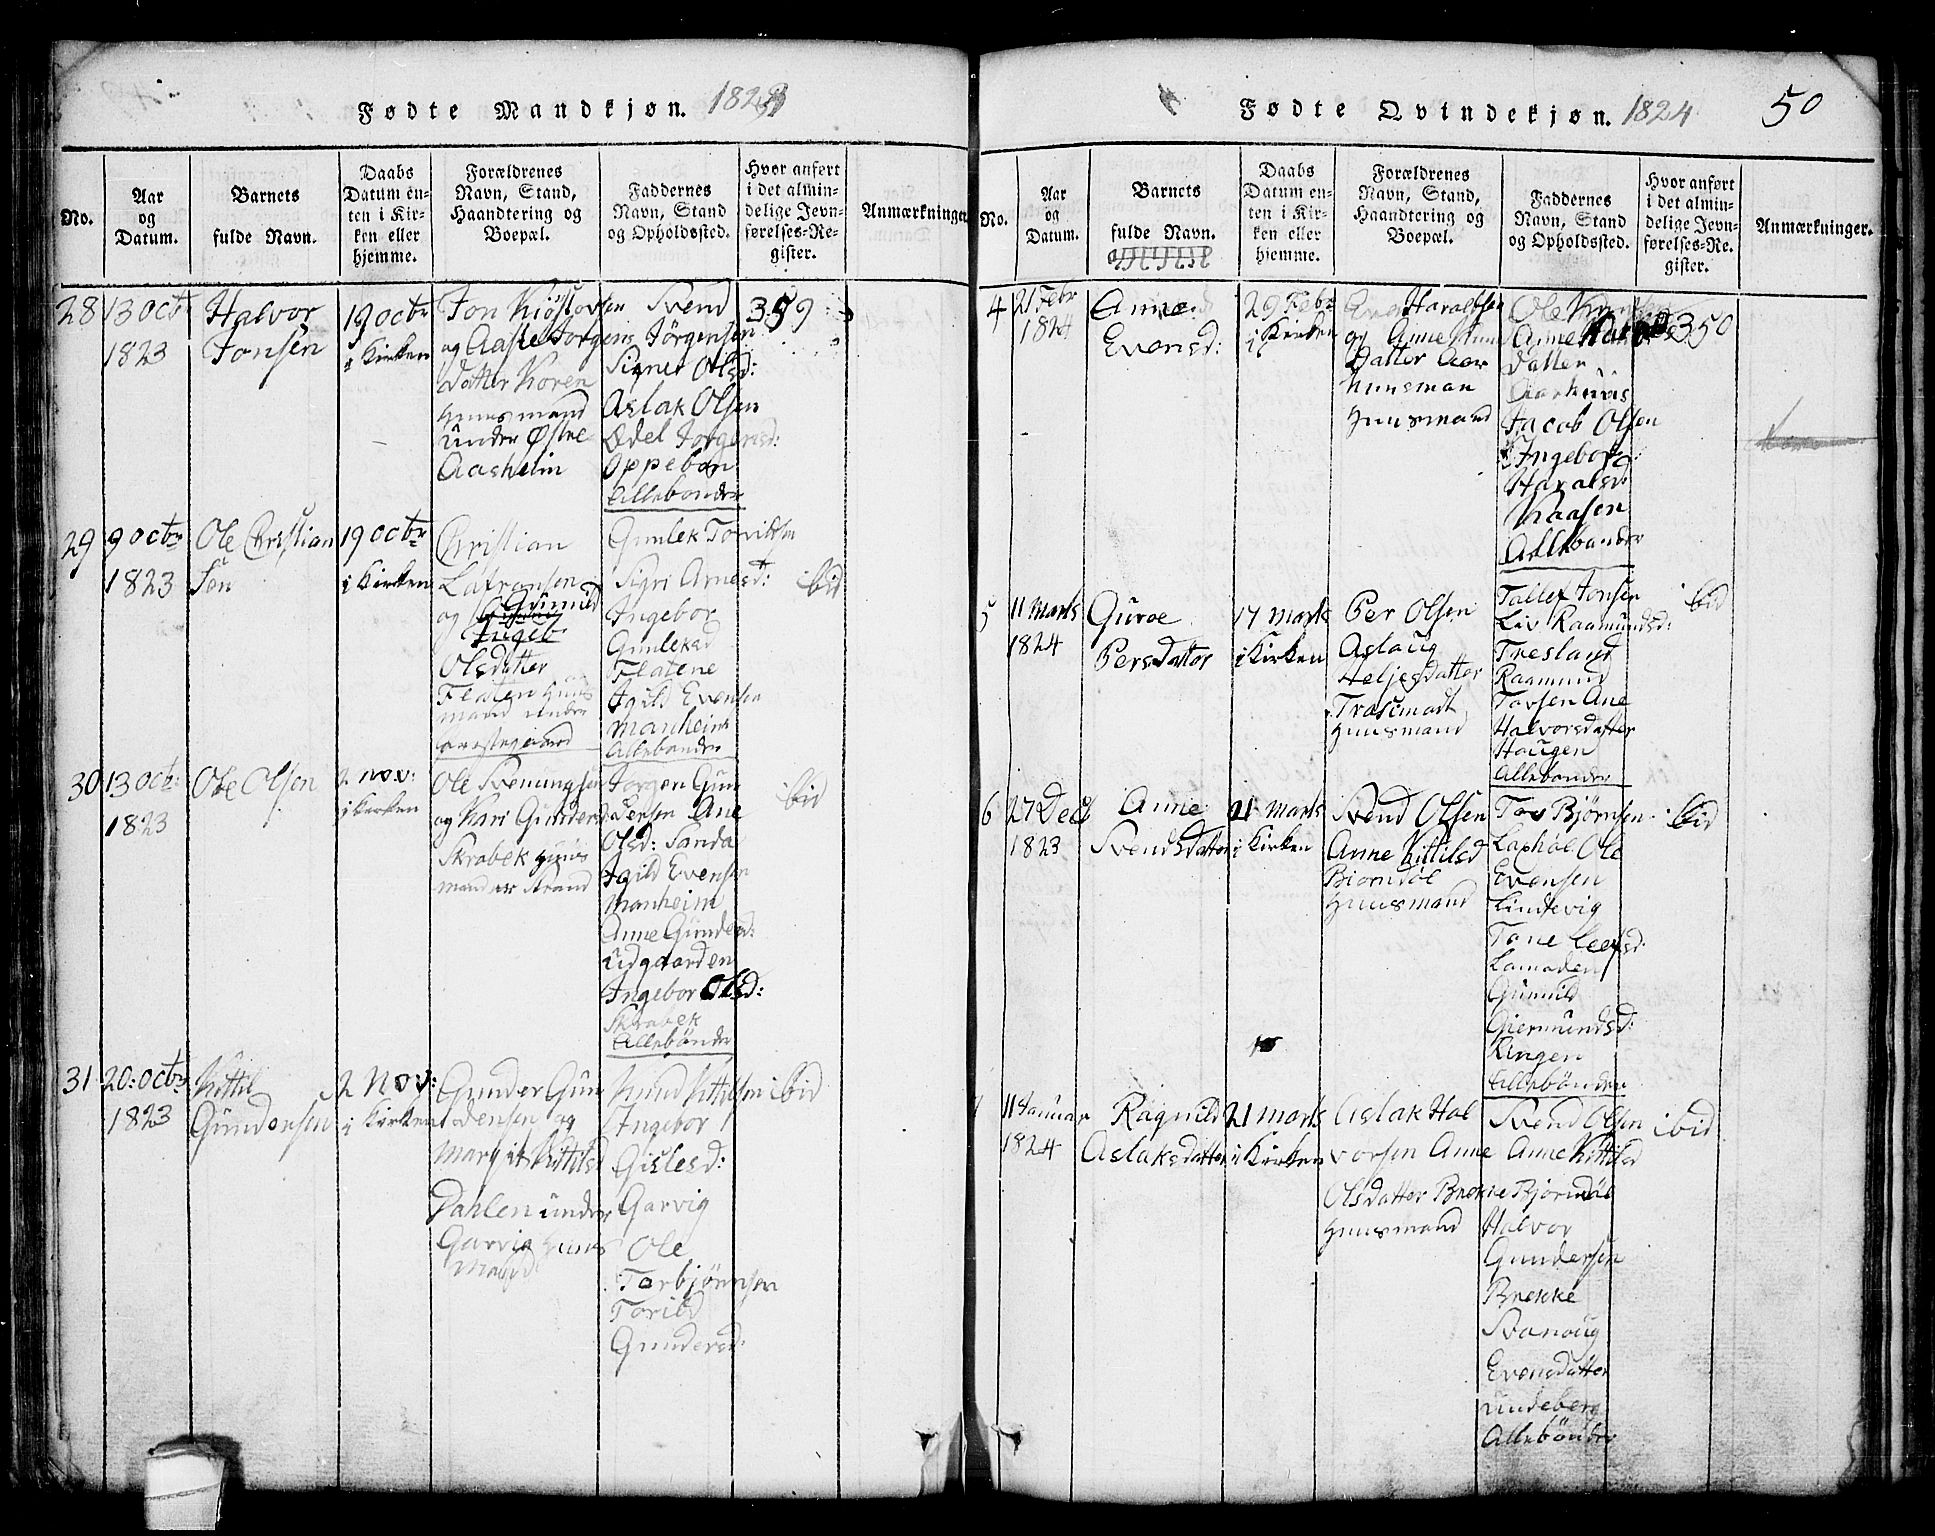 Fødte Mandkjøn. 1823
No.
Aar
og
Datum.
Barnets
fulde Navn.
Daabs
Datum en-
ten i Kir-
ken eller
hjemme.
Forældrenes
Navn, Stand,
Haandtering og
Boepæl.
Faddernes
Navn, Stand
og Opholdssted.
Hvor anført
i det almin-
delige Jevn-
førelses-Re-
gister.
Anmærkninger.
28
13 octr
1823
Halvor
Jonsen
19 octr
i Kirken
Jon Kiøstovsen
og Aaste Jorgens
datter Koren
Huusmand
under Østre
Aasheim
Svend
Jörgensen
Signe Olsd:
Aslak Olsen
Ødel Jorgensd:
Oppebøn
Allebønder
359
29
9 octr
1823
Ole Christian
Sen
19 octr
i Kirken
Christian
Lafransen
og Gunuld
Ingeb
Olsdatter
Flaten Huus
mand under
Præstegaard
Gunlek Torvildsen
Sigri Arnesd:
Ingebor
Gunleksd
Flatene
Jgild Evensen
Manheim
Allebønder
ibid
30
13 oct:
1823
Ole Olsen
2 nov:
i Kirken
Ole Sveningsen
og Kari Gundersd
Skrabek Huus
mand under Strand
Jorgen Gun
dersen Ane
Olsd: Sanda
Jgild Evensen
Manheim
Anne Gundersd:
Udgaarden
Ingebor Olsd:
Skrabek
Allebønder
ibid
31
20: octr
1823
Kittil
Gundersen
2 Nov:
i Kirken
Gunder Gun
dersen og
Margit Kittilsd
Dahlen under
Garvig Huus
mand
Knud Kittilsen
Ingebor
Gislesd:
Garvig
Ole
Torbjörnsen
Torild
Gundersd:
ibid
Fødte Qvindekjøn. 1824
50
No.
Aar
og
Datum.
Barnets
fulde Navn.
Daabs
Datum en-
ten i Kir-
ken eller
hjemme.
Forældrenes
Navn, Stand,
Haandtering og
Boepæl.
Faddernes
Navn, Stand
og Opholdssted.
Hvor anført
i det almin-
delige Jevn-
førelses-Re-
gister.
Anmærkninger.
4
21 Febr
1824
Anne
Evensd:
29 Febr
i Kirken
Even Haraldsen
og Anne
Datter Aas
Huusmand
Ole
Anne
datter
Jacob Olsen
Ingebor
Haralsd:
Kaasen
Allebønder
350
5
11 Marts
1824
Guroe
Persdatter
17 Marts
i Kirken
Per Olsen
Aslaug
Heljesdatter
Huusmand
Tallef Jonsen
Liv Raamundsd:
Tresland
Raamund
Torsen Ane
Halvorsdatter
Haugen
Allebønder
ibid
6
27 Dec
1823
Anne
Svendsdatter
21 Marts
i Kirken
Svend Olsen
Anne Kittilsd
Biorndöl
Huusmand
Tor Bjørnsen
Laxhöl Ole
Evensen
Lindevig
Tone Leefsd:
Gunuld
Giermundsd:
Ringen
Allebönder
ibid
11 Januar
1824
Ragnild
Aslaksdatter
21 Marts
i Kirken
Aslak Hal
vorsen Anne
Olsdatter Brekke
Huusmand
Svend Olsen
Anne Kittilsd
Bjorndöl
Halvor
Gundersen
Brekke
Svanoug
Evensdatter
Lindeberg
Allebönder
ibid